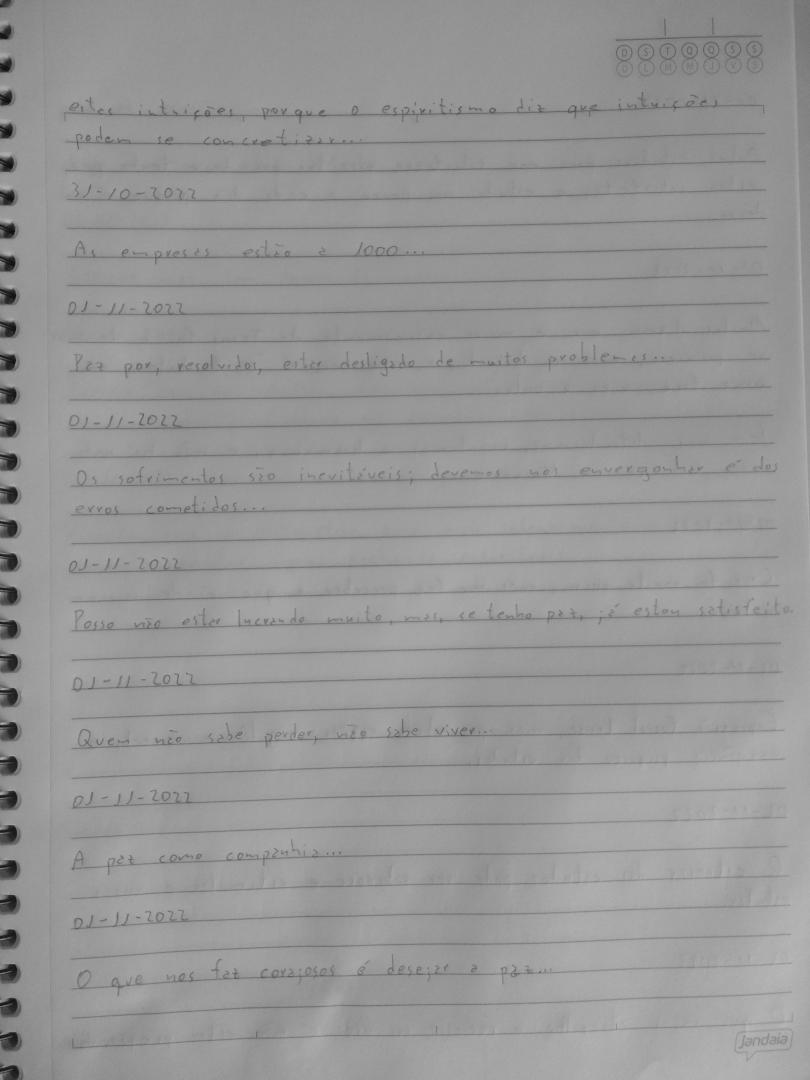 D S T Q Q S S
D L M M J V S
estas intuições, porque o espiritismo diz que intuições
podem se concretizar...
31-10-2022
As empresas estão a 1000...
01-11-2022
Paz por, resolvidos, estar desligado de muitos problemas...
01-11-2022
Os sofrimentos são inevitáveis; devemos nos envergonhar é dos
erros cometidos...
01-11-2022
Posso não estar lucrando muito, mas, se tenho paz, já estou satisfeito.
01-11-2022
Quem não sabe perder, não sabe viver...
01-11-2022
A paz como companhia...
01-11-2022
O que nos faz corajosos é desejar a paz...
Jandaia